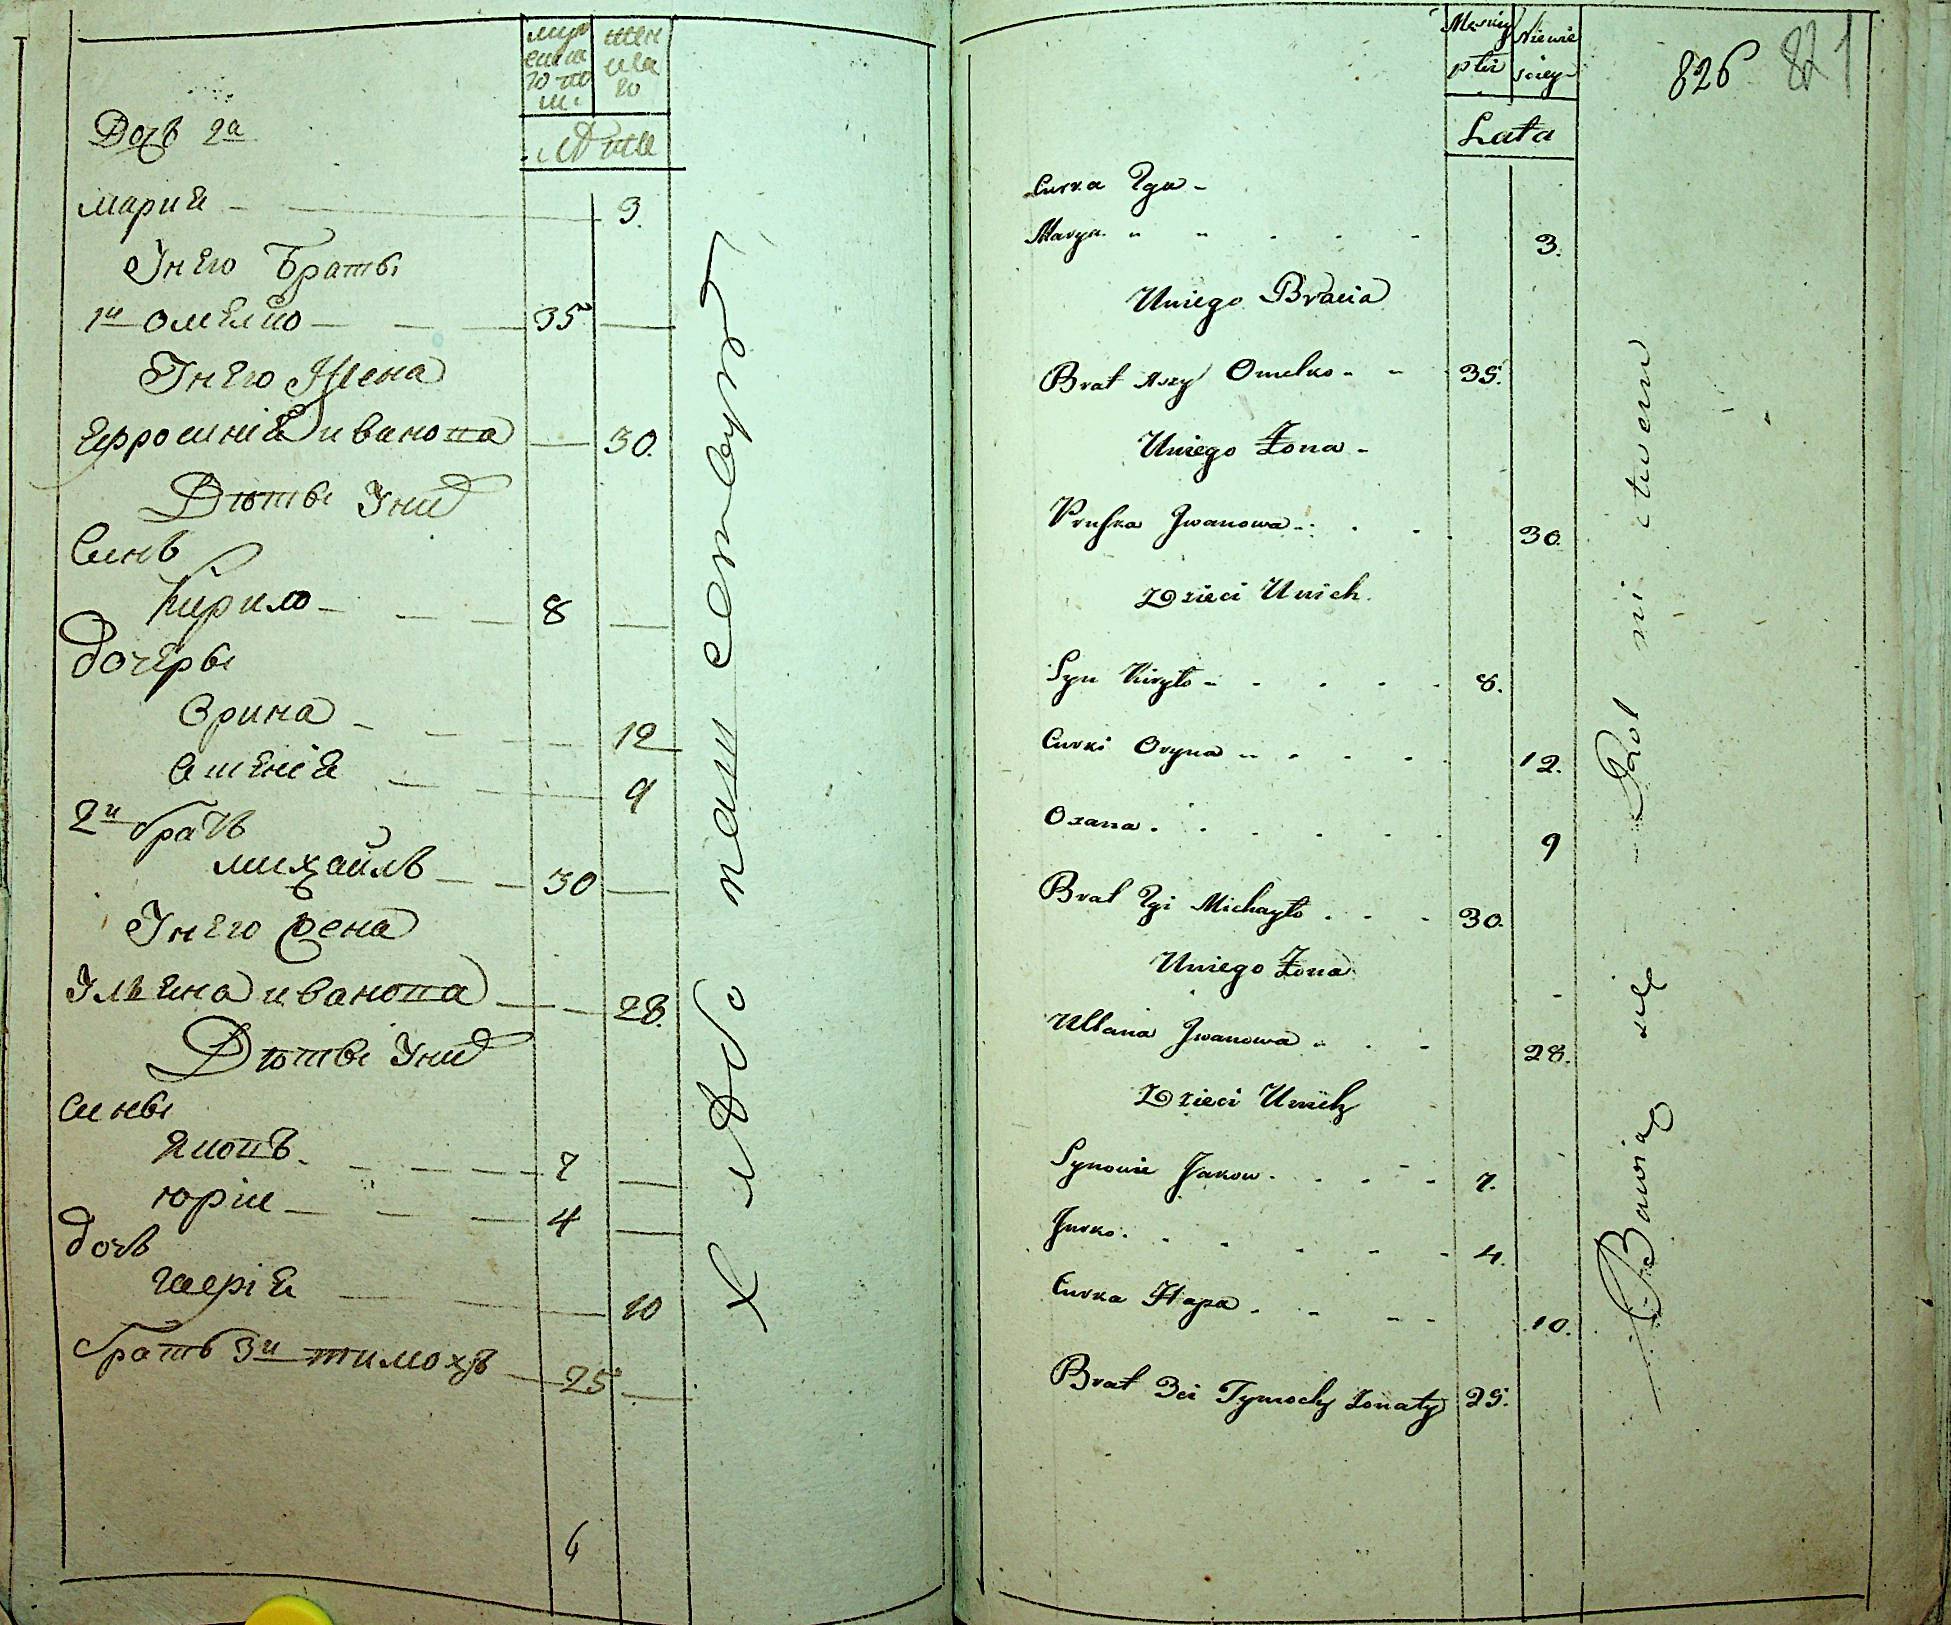 мужеска го по ш.
жен ска го
Лѣта
Дочъ 2а
Мария 3.
У него Браты
1й Омелко 35
У него Жена
Ефросиния Иванова 30.
Дѣты У них
Синъ
Кирило 8
дочеры
Орина 12
Ксения 9
2й братъ
михайлъ 30
У него жена
Ульяна иванова 28.
Дѣты У них
Сины
Яковъ 7
юрiй 4
дочъ
10
братъ 3й тимохъ 25
6
хлѣбо пашествуют
Męskiey płci
Niewie sciey
826 821
Lata
Curka 2ga
Marya 3.
Uniego Bracia
Brat 1szy Omelko 35.
Uniego Żona
Pruśka Jwanowa 30.
Dzieci Unich
Syn Kiryło 8.
Curki Oryna 12.
Oxana 9
Brat 2gi Michayło 30.
Uniego Żona
Ullana Jwanowa 28.
Dzieci Unich
Synowie Jakow 7.
Jurko 4.
Curka Hapa 10.
Brat 3ci Tymoch Żonaty 25.
Bawią się Rolnictwem